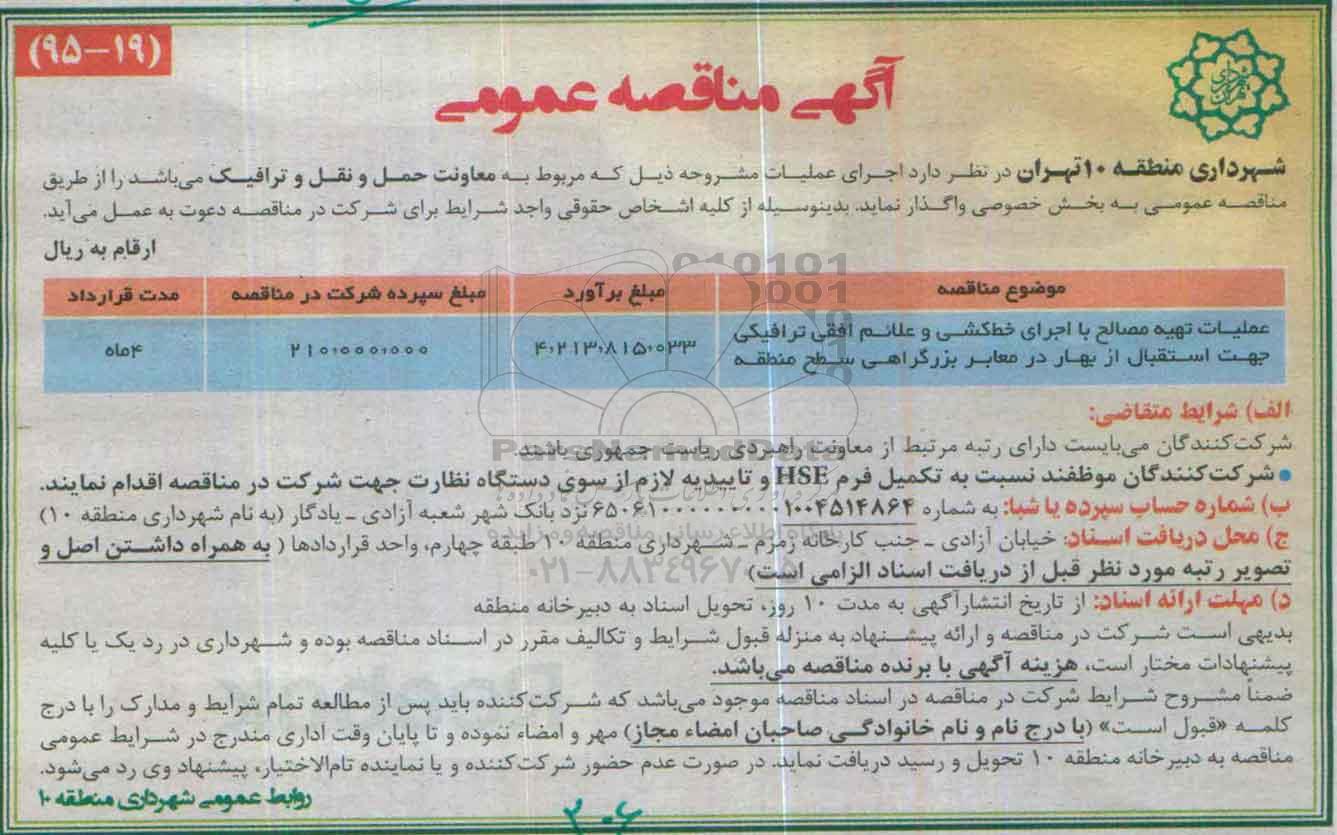 (۱۹-۹۵)
شهرداری تهران
آگهی مناقصه عمومی
شهرداری منطقه ۱۰ تهران در نظر دارد اجرای عملیات مشروحه ذیل که مربوط به معاونت حمل و نقل و ترافیک می‌باشد را از طریق
مناقصه عمومی به بخش خصوصی واگذار نماید. بدینوسیله از کلیه اشخاص حقوقی واجد شرایط برای شرکت در مناقصه دعوت به عمل می‌آید.
ارقام به ریال
موضوع مناقصه مبلغ برآورد مبلغ سپرده شرکت در مناقصه مدت قرارداد
عملیات تهیه مصالح با اجرای خط‌کشی و علائم افقی ترافیکی
جهت استقبال از بهار در معابر بزرگراهی سطح منطقه
۴،۲۱۳،۸۱۵،۰۳۳ ۲۱۰،۰۰۰،۰۰۰ ۴ماه
الف) شرایط متقاضی:
شرکت‌کنندگان می‌بایست دارای رتبه مرتبط از معاونت راهبردی ریاست جمهوری باشند.
• شرکت‌کنندگان موظفند نسبت به تکمیل فرم HSE و تاییدیه لازم از سوی دستگاه نظارت جهت شرکت در مناقصه اقدام نمایند.
ب) شماره حساب سپرده یا شبا: به شماره ۱۰۰۴۵۱۴۸۶۴ نزد بانک شهر شعبه آزادی ـ یادگار (به نام شهرداری منطقه ۱۰)
ج) محل دریافت اسناد: خیابان آزادی ـ جنب کارخانه زمزم ـ شهرداری منطقه ۱۰ طبقه چهارم، واحد قراردادها ( به همراه داشتن اصل و
تصویر رتبه مورد نظر قبل از دریافت اسناد الزامی است)
د) مهلت ارائه اسناد: از تاریخ انتشارآگهی به مدت ۱۰ روز، تحویل اسناد به دبیرخانه منطقه
بدیهی است شرکت در مناقصه و ارائه پیشنهاد به منزله قبول شرایط و تکالیف مقرر در اسناد مناقصه بوده و شهرداری در رد یک یا کلیه
پیشنهادات مختار است، هزینه آگهی با برنده مناقصه می‌باشد.
ضمناً مشروح شرایط شرکت در مناقصه در اسناد مناقصه موجود می‌باشد که شرکت‌کننده باید پس از مطالعه تمام شرایط و مدارک را با درج
کلمه «قبول است» (با درج نام و نام خانوادگی صاحبان امضاء مجاز) مهر و امضاء نموده و تا پایان وقت اداری مندرج در شرایط عمومی
مناقصه به دبیرخانه منطقه ۱۰ تحویل و رسید دریافت نماید. در صورت عدم حضور شرکت‌کننده و یا نماینده تام‌الاختیار، پیشنهاد وی رد می‌شود.
روابط عمومی شهرداری منطقه ۱۰